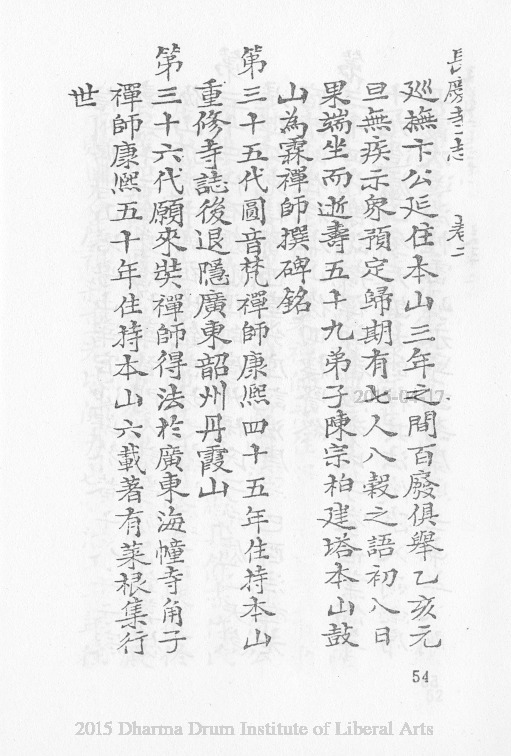 長慶寺志 卷二
巡撫卞公延住本山三年之間百廢俱舉乙亥元
旦無疾示眾預定歸期有七人八穀之語初八日
果端坐而逝壽五十九弟子陳宗柏建塔本山鼓
山為霖禪師撰碑銘
第三十五代圓音梵禪師康熙四十五年住持本山
重修寺誌後退隱廣東韶州丹霞山
第三十六代願來奘禪師得法於廣東海幢寺角子
禪師康熙五十年住持本山六載著有菜根集行
世
54
2015 Dharma Drum Institute of Liberal Arts